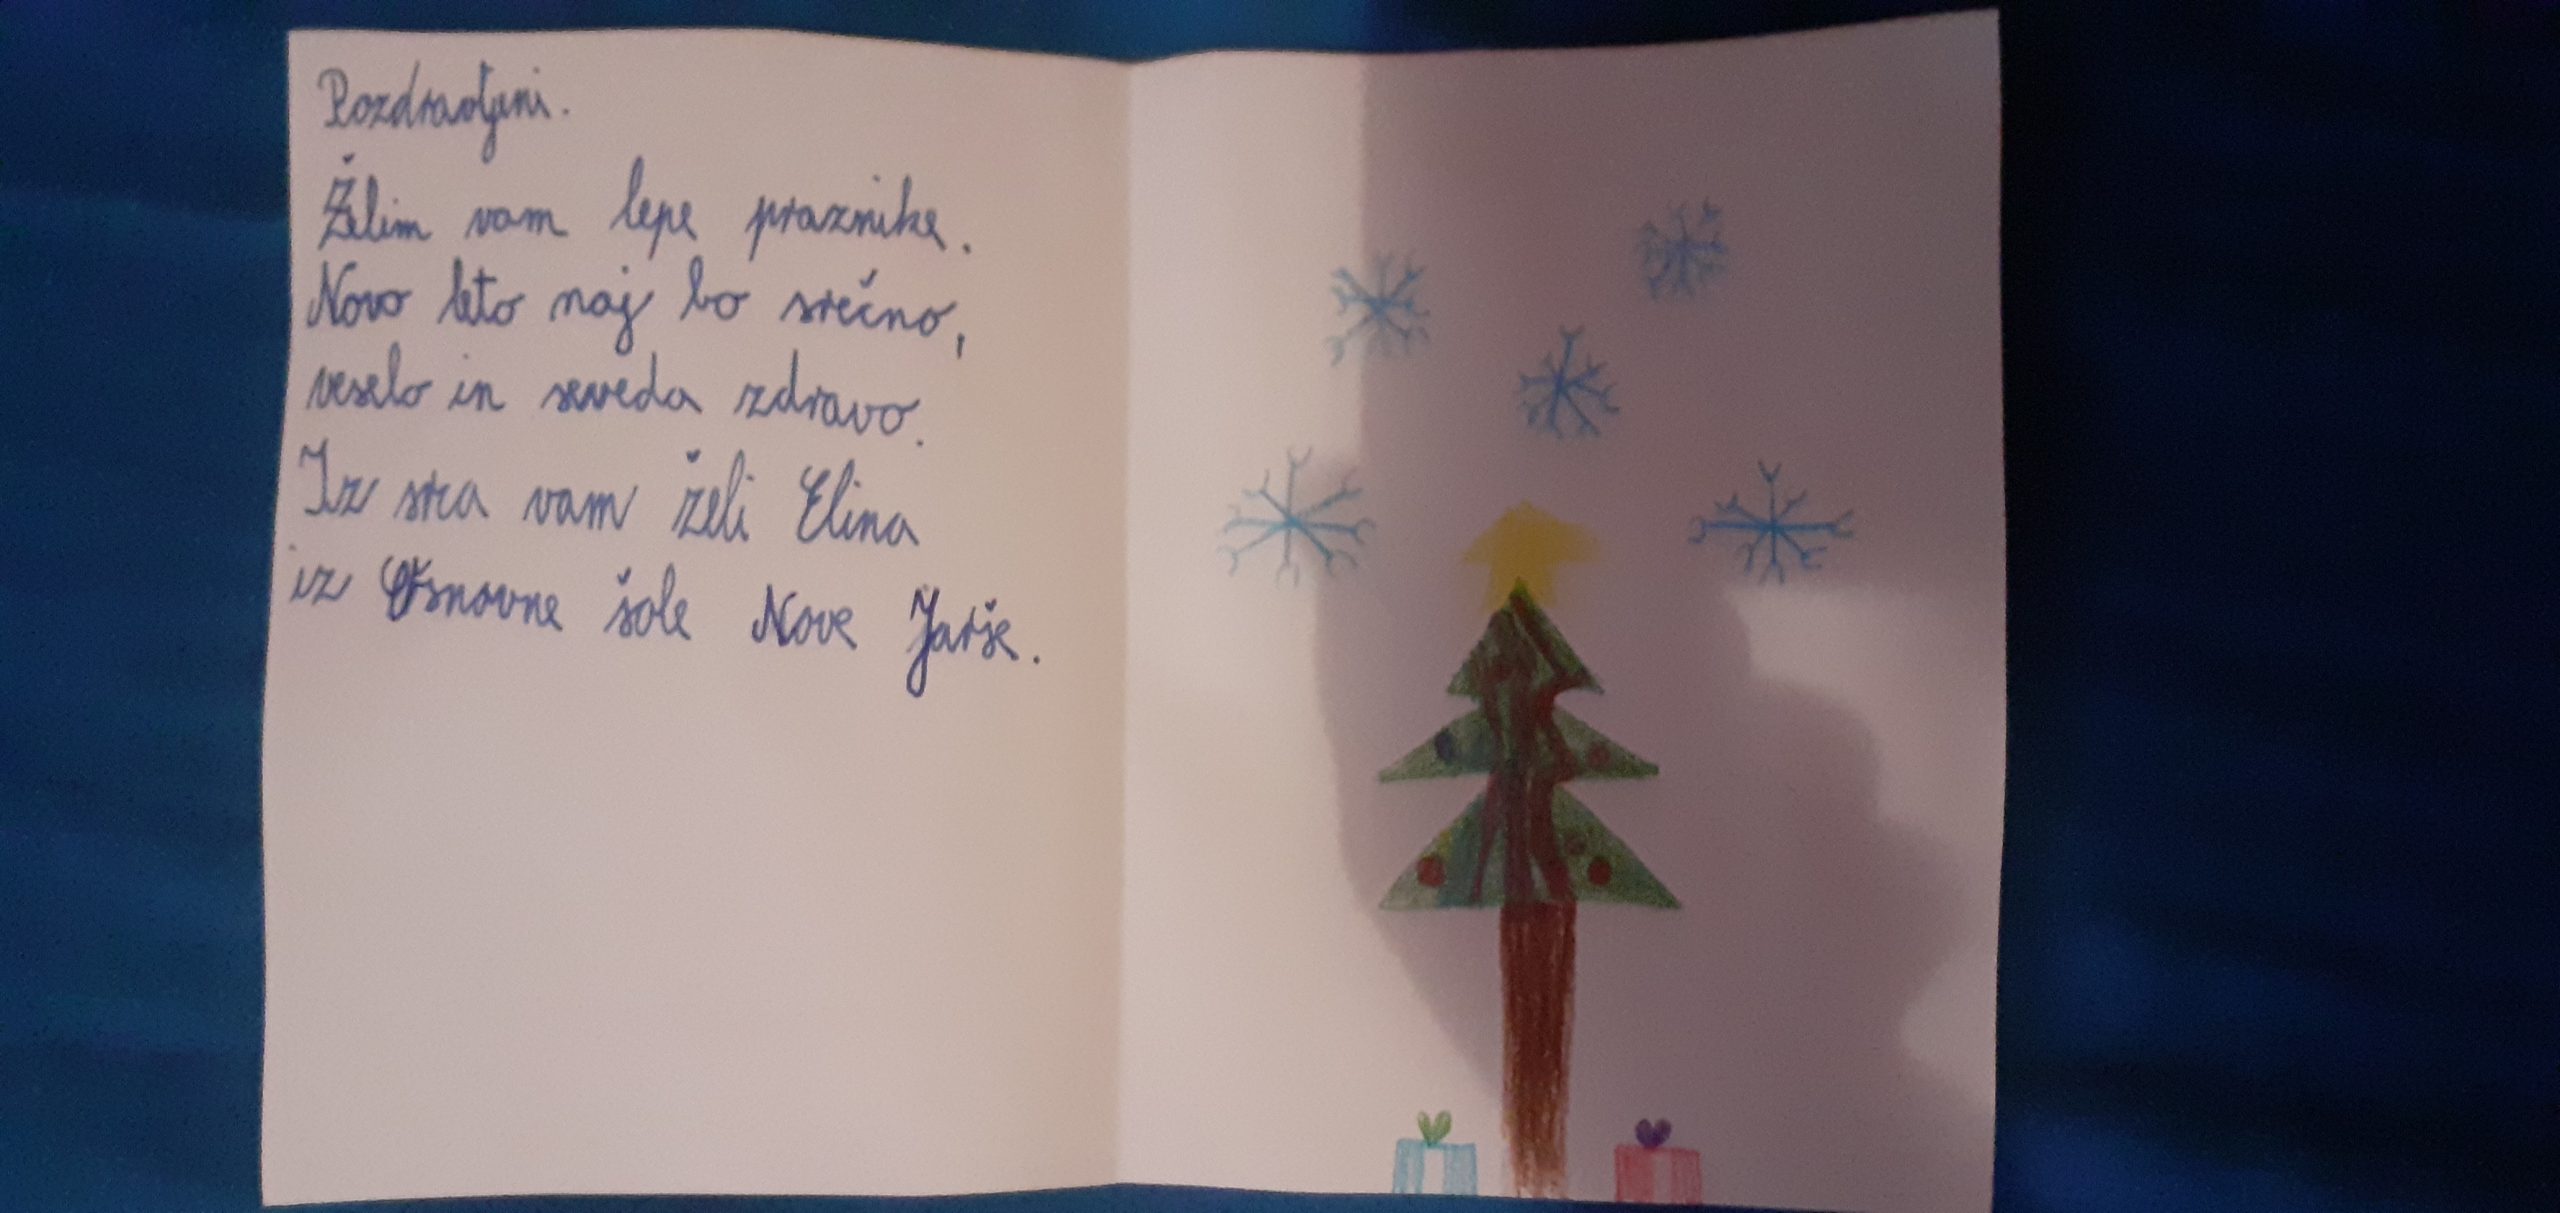 Pozdravljeni.
Želim vam lepe praznike.
Novo leto naj bo srečno,
veselo in seveda zdravo.
Iz srca vam želi Elina
iz Osnovne šole Nove Jarše.